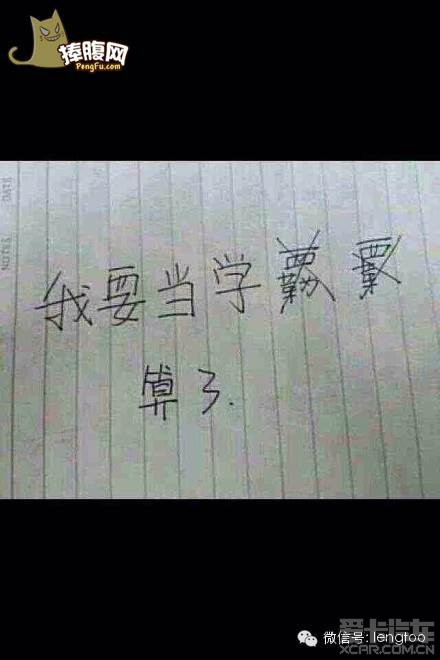 捧腹网
PengFu.com
我要当学
算了.
微信号: lengtoo
爱卡汽车
XCAR.COM.CN